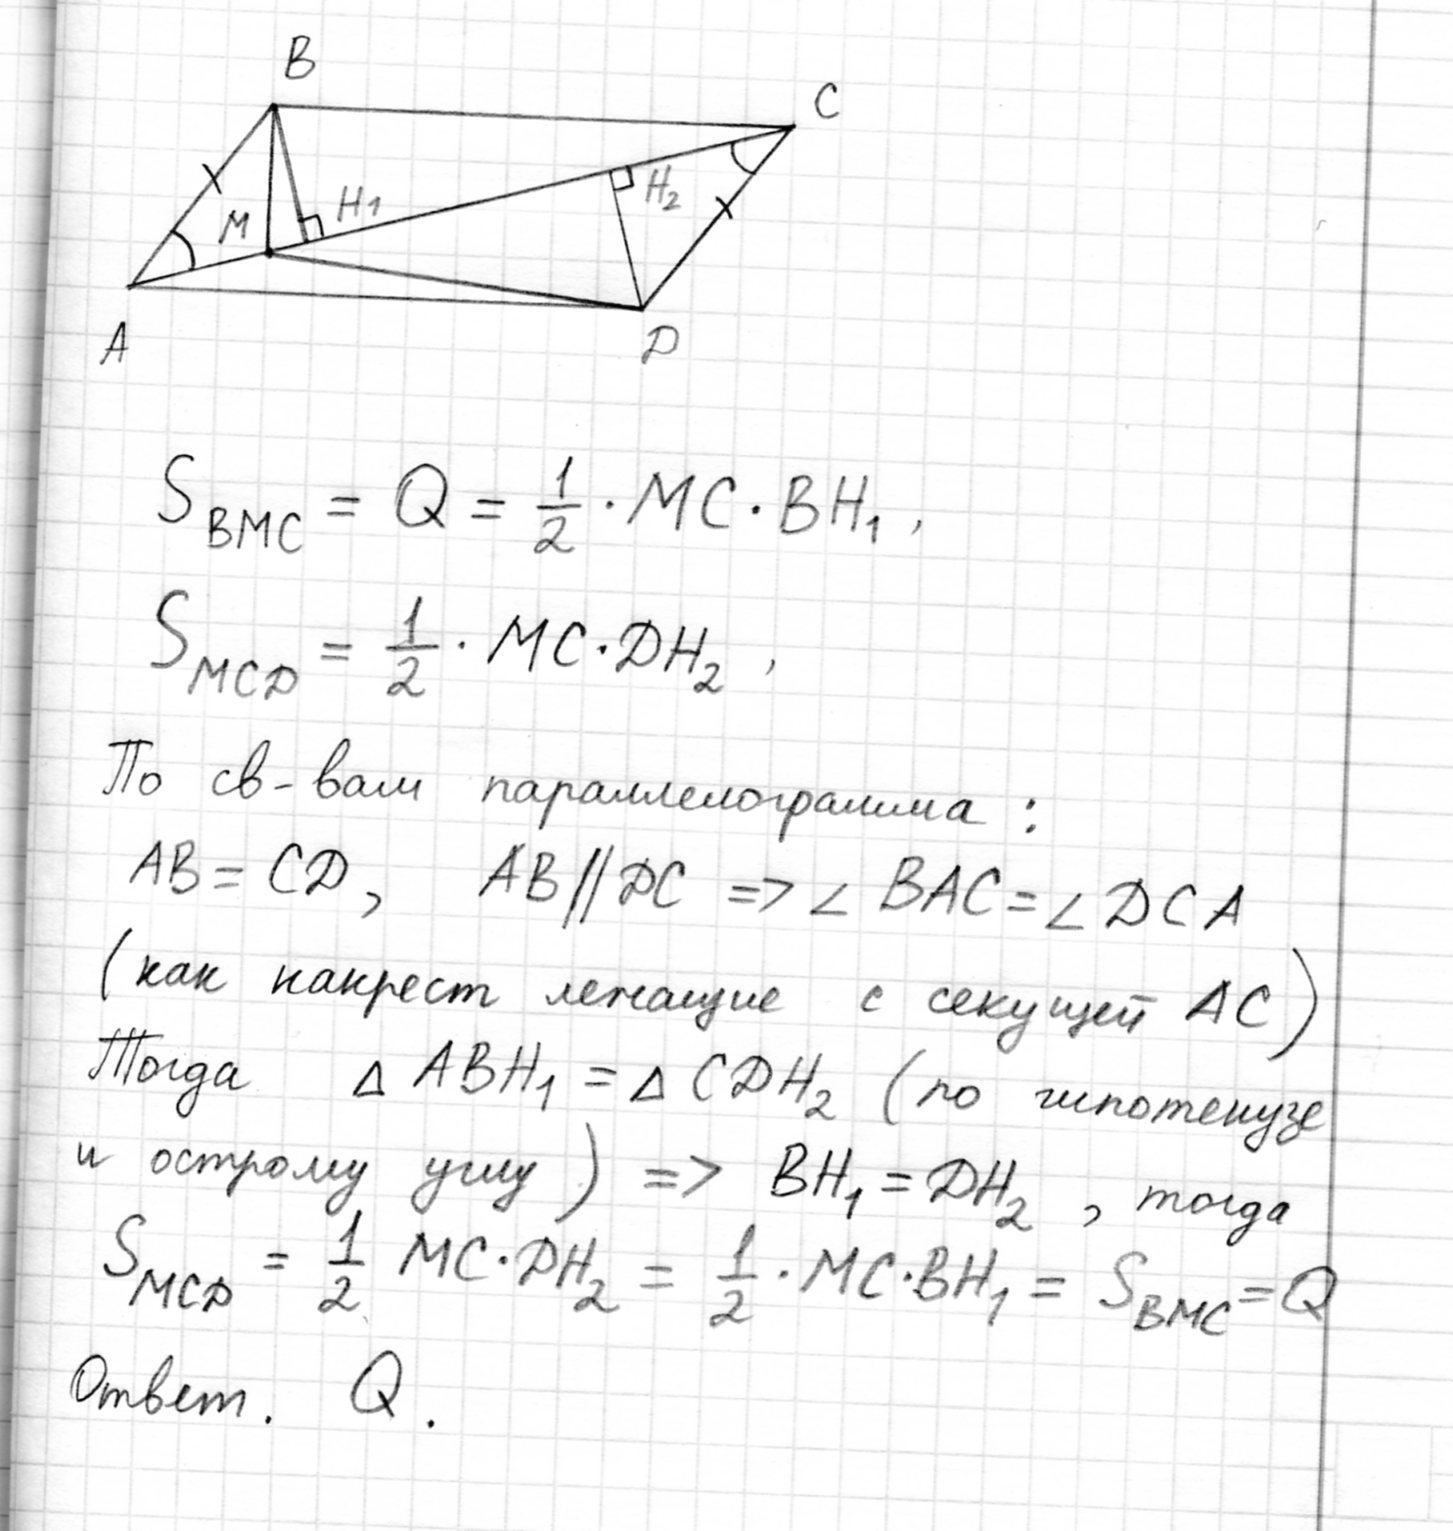 B
C
M
H₁
H₂
A
D
S_BMC = Q = 1/2 · MC · BH₁,
S_MCD = 1/2 · MC · DH₂,
По св-вам параллелограмма:
AB = CD, AB || DC => ∠ BAC = ∠ DCA
(как накрест лежащие с секущей AC)
Тогда Δ ABH₁ = Δ CDH₂ (по гипотенузе
и острому углу) => BH₁ = DH₂, тогда
S_MCD = 1/2 MC · DH₂ = 1/2 · MC · BH₁ = S_BMC = Q
Ответ. Q.